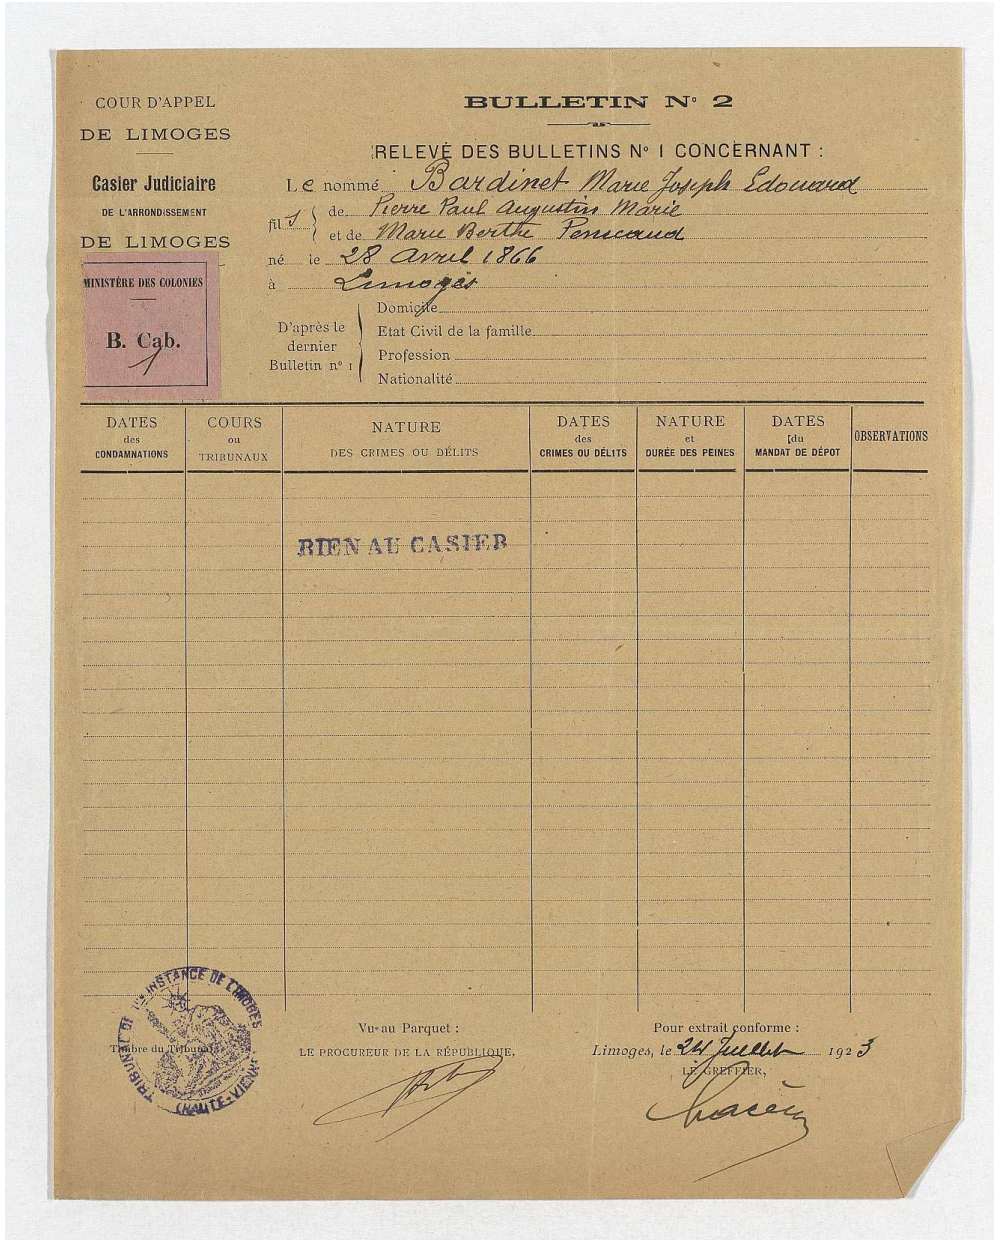 COUR D'APPEL
DE LIMOGES
Casier Judiciaire
DE L'ARRONDISSEMENT
DE LIMOGES
MINISTÈRE DES COLONIES
B. Cab.
1
BULLETIN Nº 2
RELEVÉ DES BULLETINS Nº 1 CONCERNANT :
Le nommé Bardinet Marie Joseph Edouard
fils de Pierre Paul Augustin Marie
et de Marie Berthe Penicaud
né le 28 Avril 1866
à Limoges
D'après le dernier Bulletin nº 1
Domicile
Etat Civil de la famille
Profession
Nationalité
DATES des CONDAMNATIONS
COURS ou TRIBUNAUX
NATURE DES CRIMES OU DÉLITS
DATES des CRIMES OU DÉLITS
NATURE et DURÉE DES PEINES
DATES du MANDAT DE DÉPOT
OBSERVATIONS
RIEN AU CASIER
TRIBUNAL DE 1re INSTANCE DE LIMOGES
(HAUTE-VIENNE)
Timbre du Tribunal
Vu au Parquet :
LE PROCUREUR DE LA RÉPUBLIQUE,
Pour extrait conforme :
Limoges, le 24 Juillet 1923
LE GREFFIER,